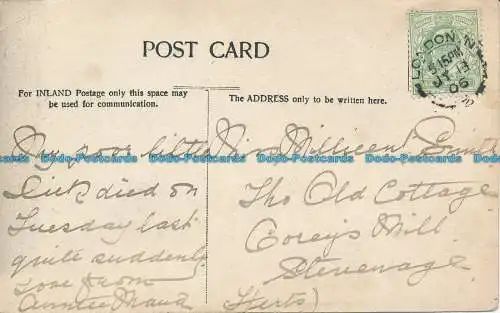 POST CARD
For INLAND Postage only this space may
be used for communication.
The ADDRESS only to be written here.
LONDON. N
5.15 PM
JY 13
06
My poor little
Dick died on
Tuesday last
quite suddenly
love from
Auntie Maud
Miss Millicent Smith
The Old Cottage
Corey's Mill
Stevenage
Herts)
Dodo-Postcards Dodo-Postcards Dodo-Postcards Dodo-Postcards